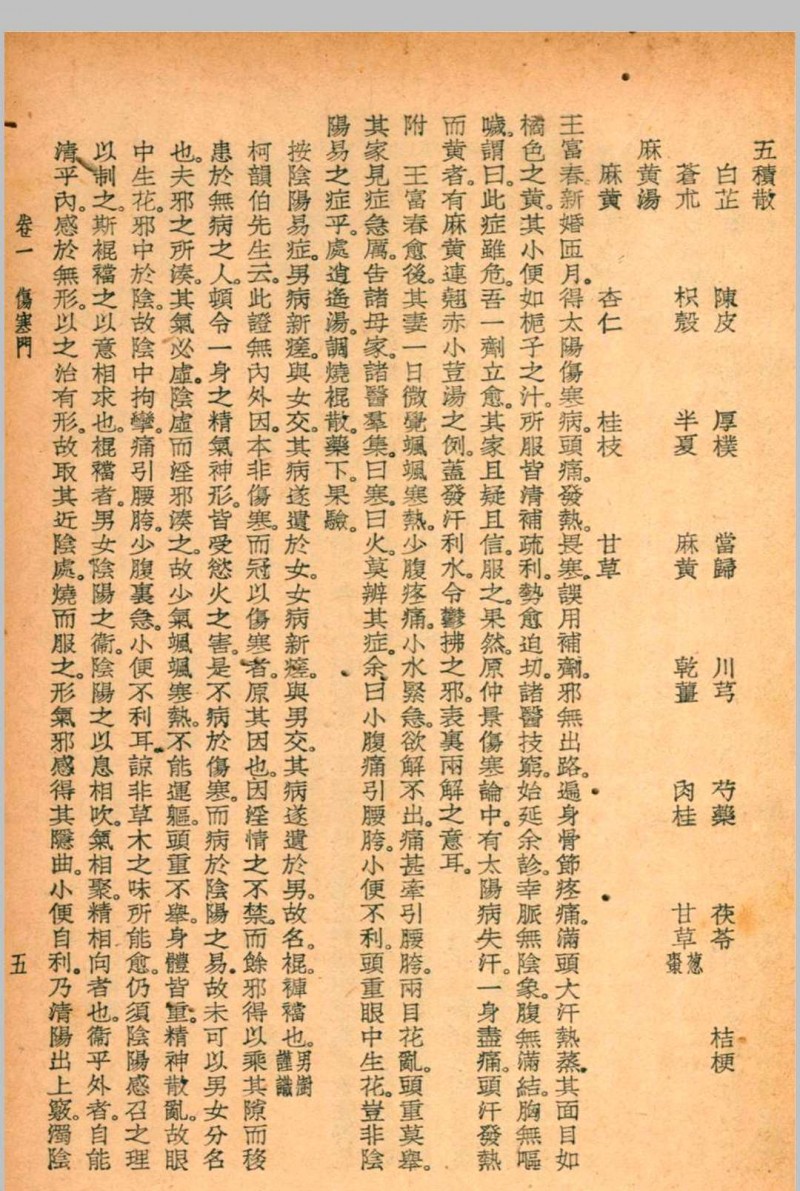 五積散
白芷　陳皮　厚樸　當歸　川芎　芍藥　茯苓　桔梗
蒼朮　枳殼　半夏　麻黃　乾薑　肉桂　甘草　葱棗
麻黃湯
麻黃　杏仁　桂枝　甘草
王富春新婚匝月。得太陽傷寒病。頭痛。發熱。畏寒。誤用補劑。邪無出路。遍身骨節疼痛。滿頭大汗熱蒸。其面目如
橘色之黃。其小便如梔子之汁。所服皆清補疏利。勢愈迫切。諸醫技窮。始延余診。幸脈無陰象。腹無滿結。胸無嘔
噦。謂曰。此症雖危。吾一劑立愈。其家且疑且信。服之。果然。原仲景傷寒論中。有太陽病失汗。一身盡痛。頭汗發熱
而黃者。有麻黃連翹赤小荳湯之例。蓋發汗利水。令鬱拂之邪。表裏兩解之意耳。
附　王富春愈後。其妻一日微覺颯颯寒熱。少腹疼痛。小水緊急。欲解不出。痛甚牽引腰胯。兩目花亂。頭重莫舉。
其家見症急厲。告諸母家。諸醫羣集。曰寒。曰火。莫辨其症。余曰小腹痛引腰胯。小便不利。頭重眼中生花。豈非陰
陽易之症乎。處逍遙湯。調燒棍散。藥下。果驗。
按陰陽易症。男病新瘥。與女交。其病遂遺於女。女病新瘥。與男交。其病遂遺於男。故名。棍。褲襠也。男澍謹識
柯韻伯先生云。此證無內外因。本非傷寒。而冠以傷寒者。原其因也。因淫情之不禁。而餘邪得以乘其隙而移
患於無病之人。頓令一身之精氣神形。皆受慾火之害。是不病於傷寒。而病於陰陽之易。故未可以男女分名
也。夫邪之所湊。其氣必虛。陰虛而淫邪湊之。故少氣颯颯寒熱。不能運軀。頭重不舉。身體皆重。精神散亂。故眼
中生花。邪中於陰。故陰中拘攣。痛引腰胯。少腹裏急。小便不利耳。諒非草木之味所能愈。仍須陰陽感召之理
以制之。斯棍襠之以意相求也。棍襠者。男女陰陽之衞。陰陽之以息相吹。氣相聚。精相向者也。衞乎外者。自能
清乎內。感於無形。以之治有形。故取其近陰處。燒而服之。形氣邪感得其隱曲。小便自利。乃清陽出上竅。濁陰
卷一　傷寒門　五